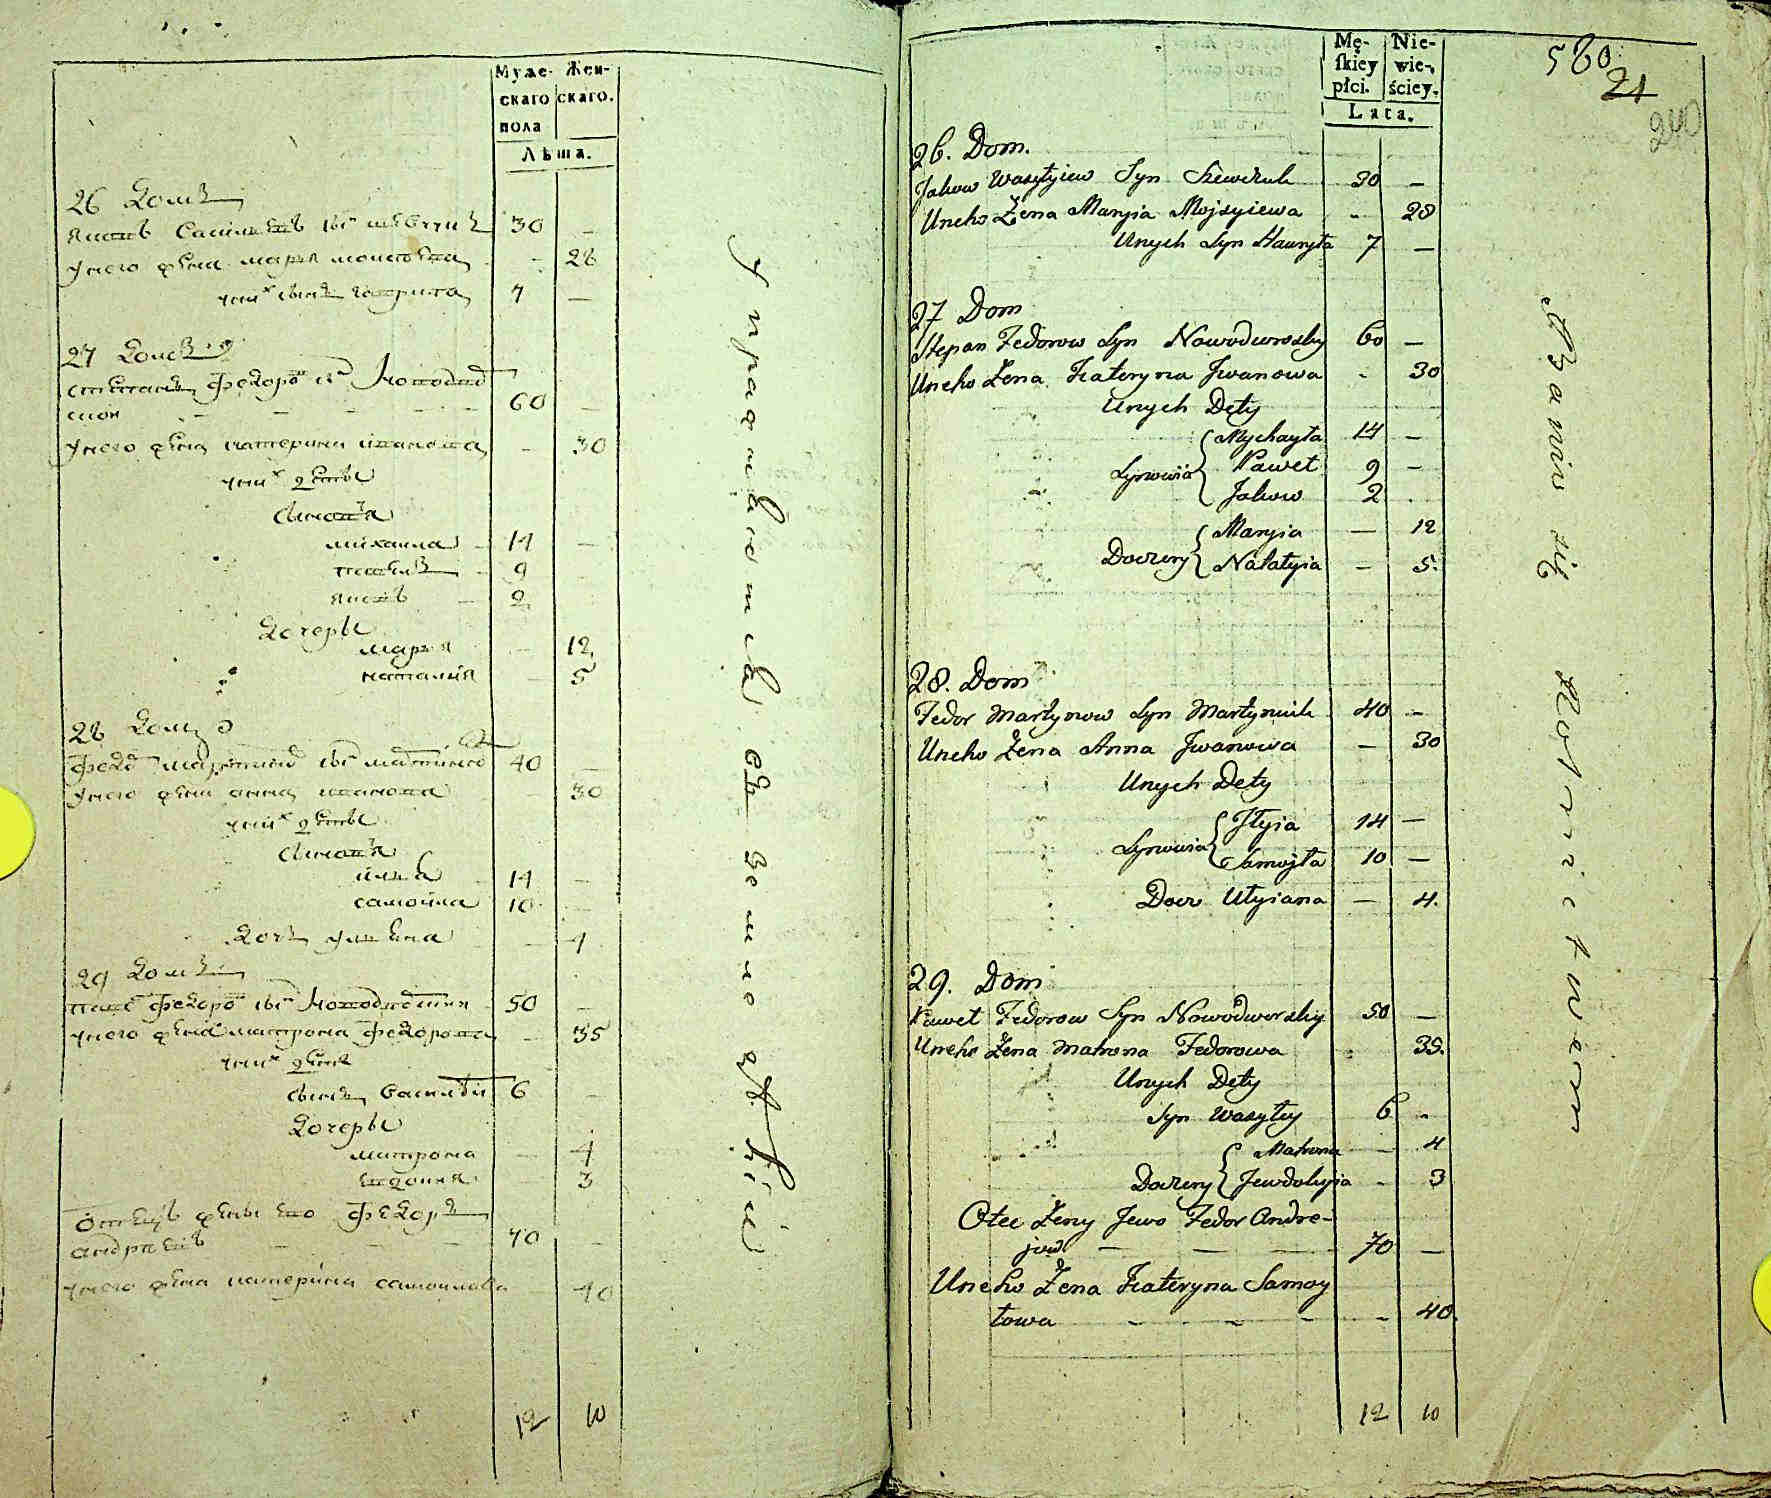 Муже- Жен-
скаго скаго.
пола
Лѣта.
26 Домъ
Яковъ Васильевъ сынъ Шевчукъ 30 –
У него жена Марья Моисеева – 28
У нихъ сынъ Гаврила 7 –
27 Домъ
Степанъ Федоровъ сынъ Новодвор
скои – – – – – 60 –
У него жена Катерина Иванова – 30
У нихъ дѣты
Сыновья
Михаила – 14 –
Павелъ – 9 –
Яковъ – 2
Дочеры
Марья – 12
Наталия – 5
28 Домъ
Федоръ Мартыновъ сынъ Мартынюкъ 40 –
У него жена Анна Иванова 30
У нихъ дѣты
Сыновья
Илья 14 –
Самойла 10 –
Дочь Ульяна – 4
29 Домъ
Павелъ Федоровъ сынъ Новодворский 50 –
У него жена Матрона Федорова – 35
У нихъ дѣти
Сынъ Василѣй 6 –
Дочеры
Матрона – 4
Евдокия – 3
Отецъ жены его Федоръ
Андреевъ – – – 70 –
У него жена Катерина Самоилова 40
12 10
Упражняются въ земледѣлій
Mę- Nie-
skiey wie-
płci. ściey.
Lata.
580
21
240
26. Dom.
Jakow Wasylyiew Syn Szewczuk 30 –
Uneho Żena Maryia Mojsyiewa – 28
Unych Syn Hauryła 7 –
27 Dom
Stepan Fedorow Syn Nowodworsky 60 –
Uneho Żena Kateryna Jwanowa – 30
Unych Dety
Mychayła 14 –
Synowia Paweł 9 –
Jakow 2 .
Maryia – 12
Doczery Natałyia – 5.
28. Dom
Fedor Martynow Syn Martyniuk 40 –
Uneho Żena Anna Jwanowa – 30
Unych Dety
Jłyia 14 –
Synowia Samojła 10 –
Docz Ulyiana – 4.
29. Dom
Paweł Fedorow Syn Nowodworsky 50 –
Uneho Żena Matrona Fedorowa 35.
Unych Dety
Syn Wasyłey 6 –
Matrona – 4
Doczery Jewdokyia – 3
Otec Żeny Jewo Fedor Andre-
jew – – – 70 –
Uneho Żena Kateryna Samoy
łowa – – – – 40.
12 10
Bawią się Rolnictwem